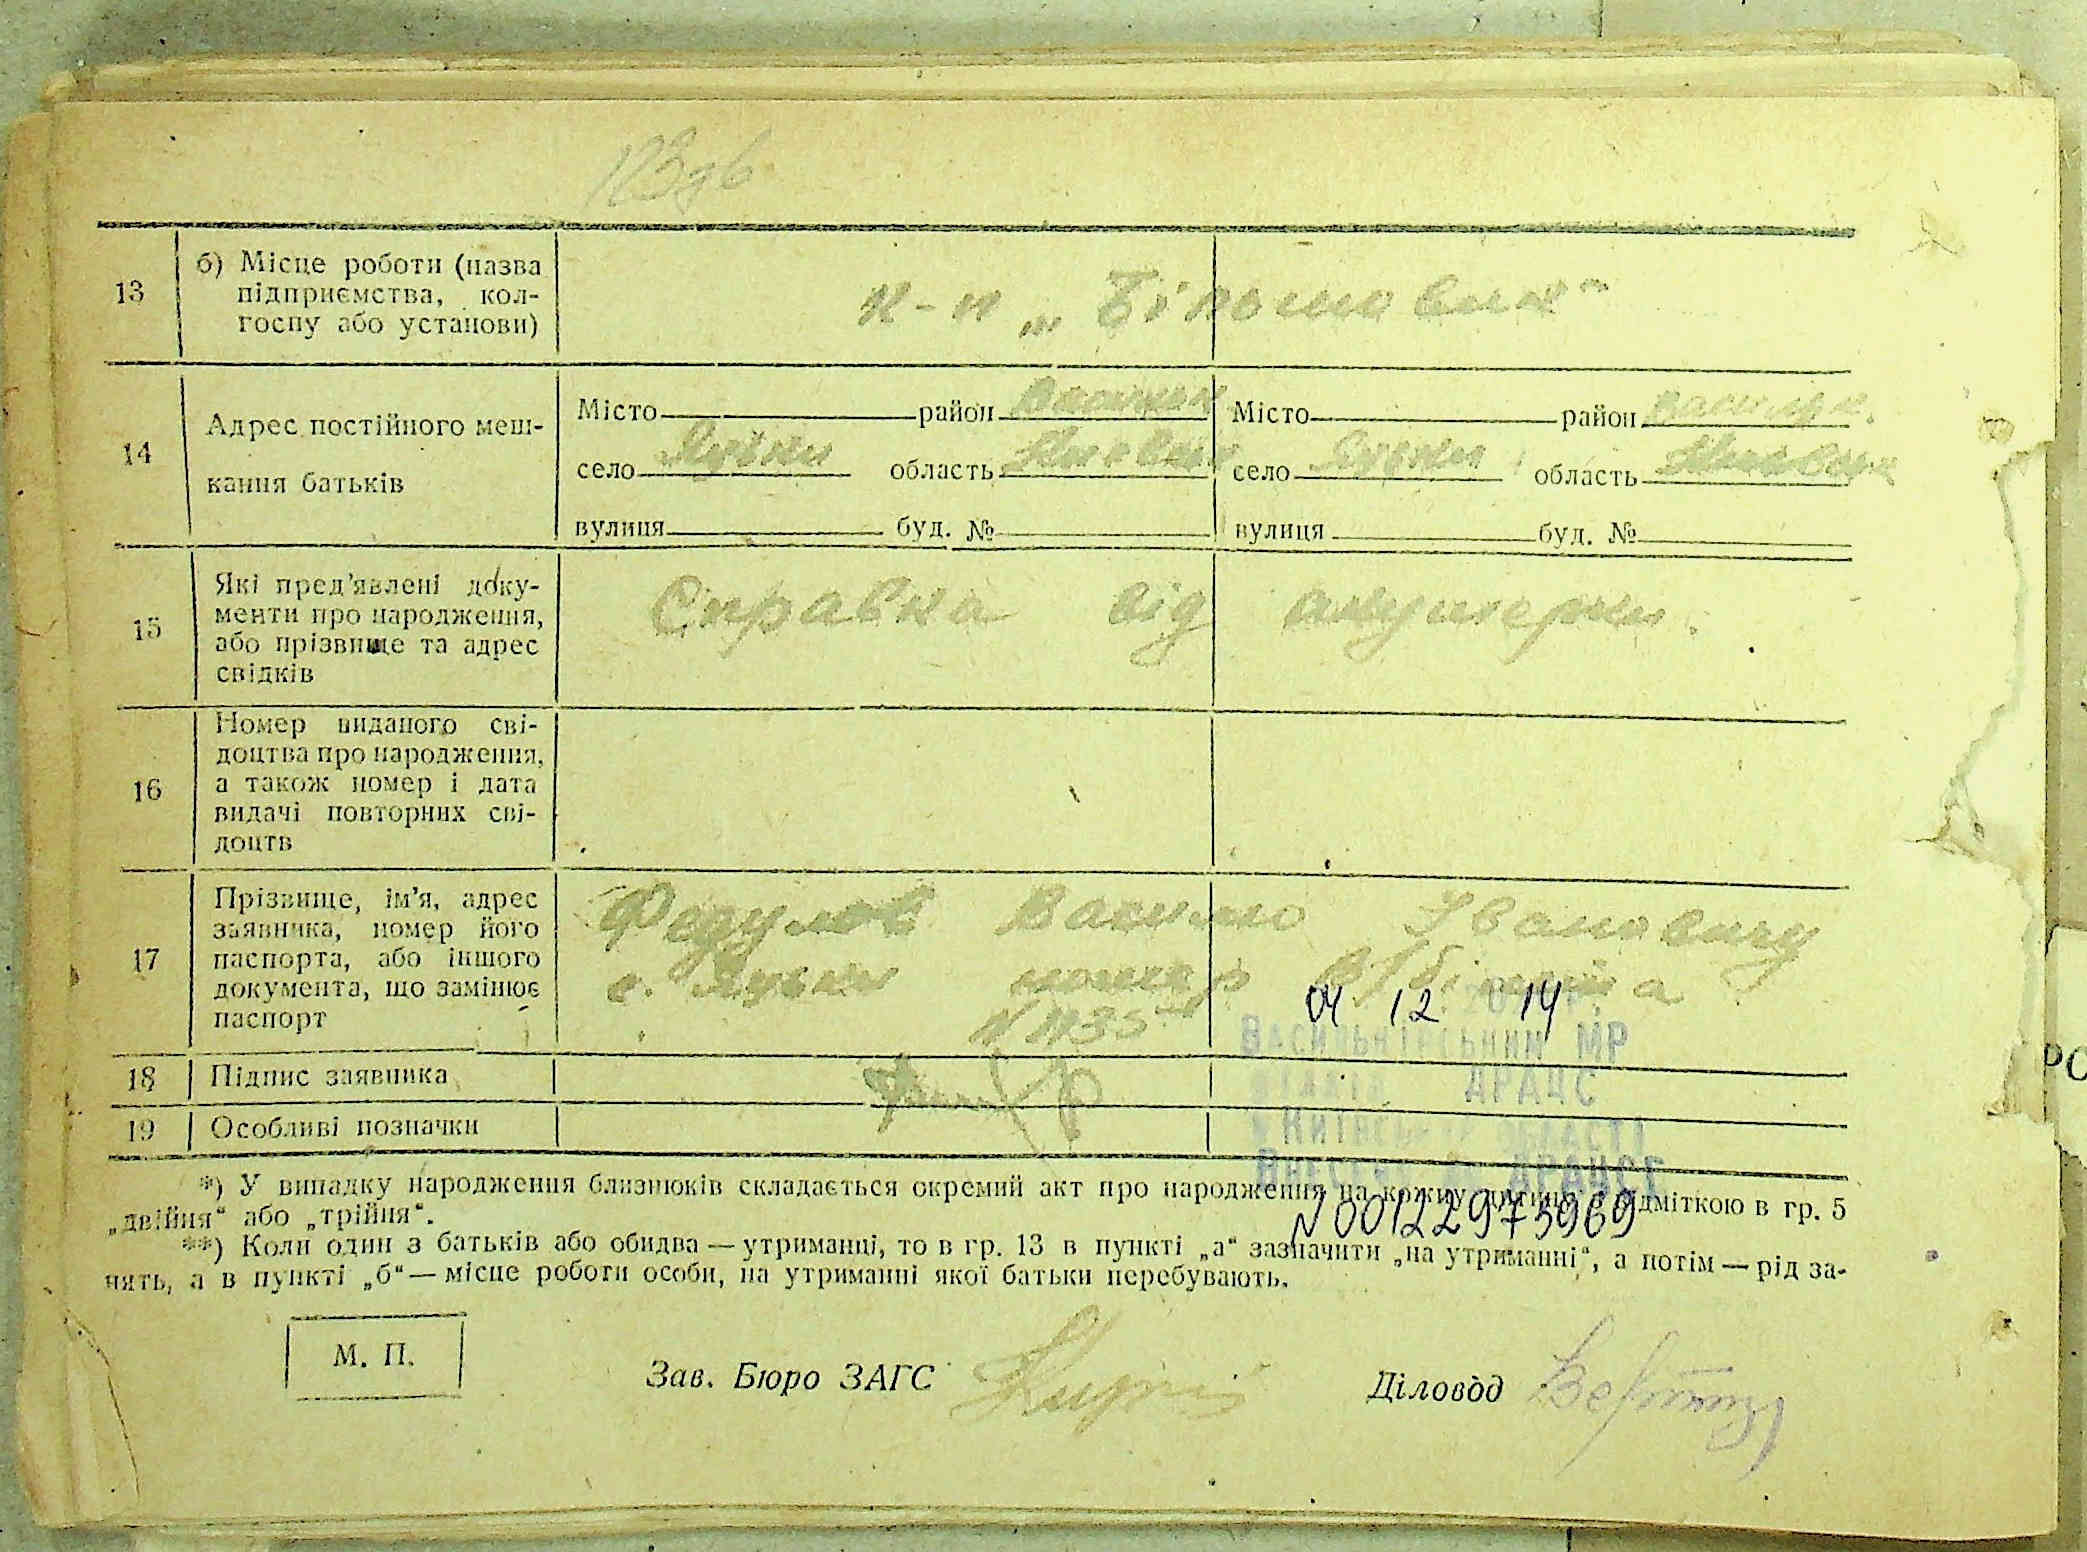 13
б) Місце роботи (назва
підприємства, кол-
госпу або установи)
к-п „Більшовик"
14
Адрес постійного меш-
кання батьків
Місто район Васильк Місто район Васильк.
село область село область
вулиця буд. № вулиця буд. №
15
Які пред'явлені доку-
менти про народження,
або прізвище та адрес
свідків
Справка від акушерки.
16
Номер виданого сві-
доцтва про народження,
а також номер і дата
видачі повторних сві-
доцтв
17
Прізвище, ім'я, адрес
заявника, номер його
паспорта, або іншого
документа, що замінює
паспорт
Федулов Василю Івановичу
с. номер в/білета
04 12 14
Васильківський МР
відділ ДРАЦС
у Київській області
18 Підпис заявника
19 Особливі позначки
*) У випадку народження близнюків складається окремий акт про народження на кожну дитину з відміткою в гр. 5
„двійня" або „трійня".
N 00122975969
**) Коли один з батьків або обидва — утриманці, то в гр. 13 в пункті „а" зазначити „на утриманні", а потім — рід за-
нять, а в пункті „б" — місце роботи особи, на утриманні якої батьки перебувають.
М. П.
Зав. Бюро ЗАГС
Діловод